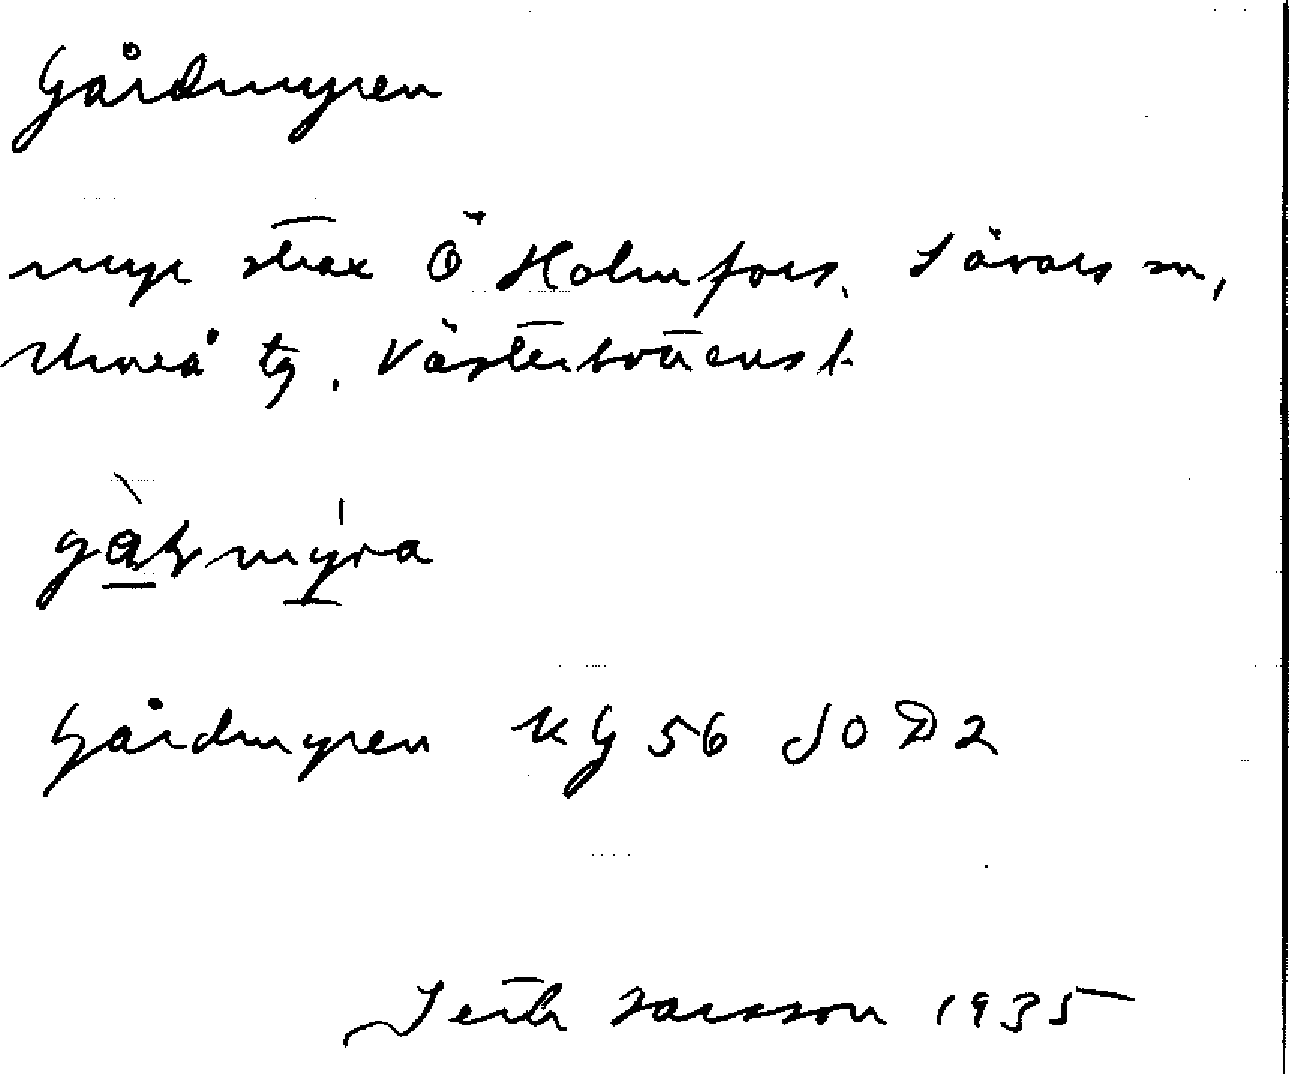 Gårdmyren
myr strax Ö Holmfors. Sävars sn,
Umeå tg. Västerbottens l.
Gårdmyren KG 56 SO D 2
Larsson 1935